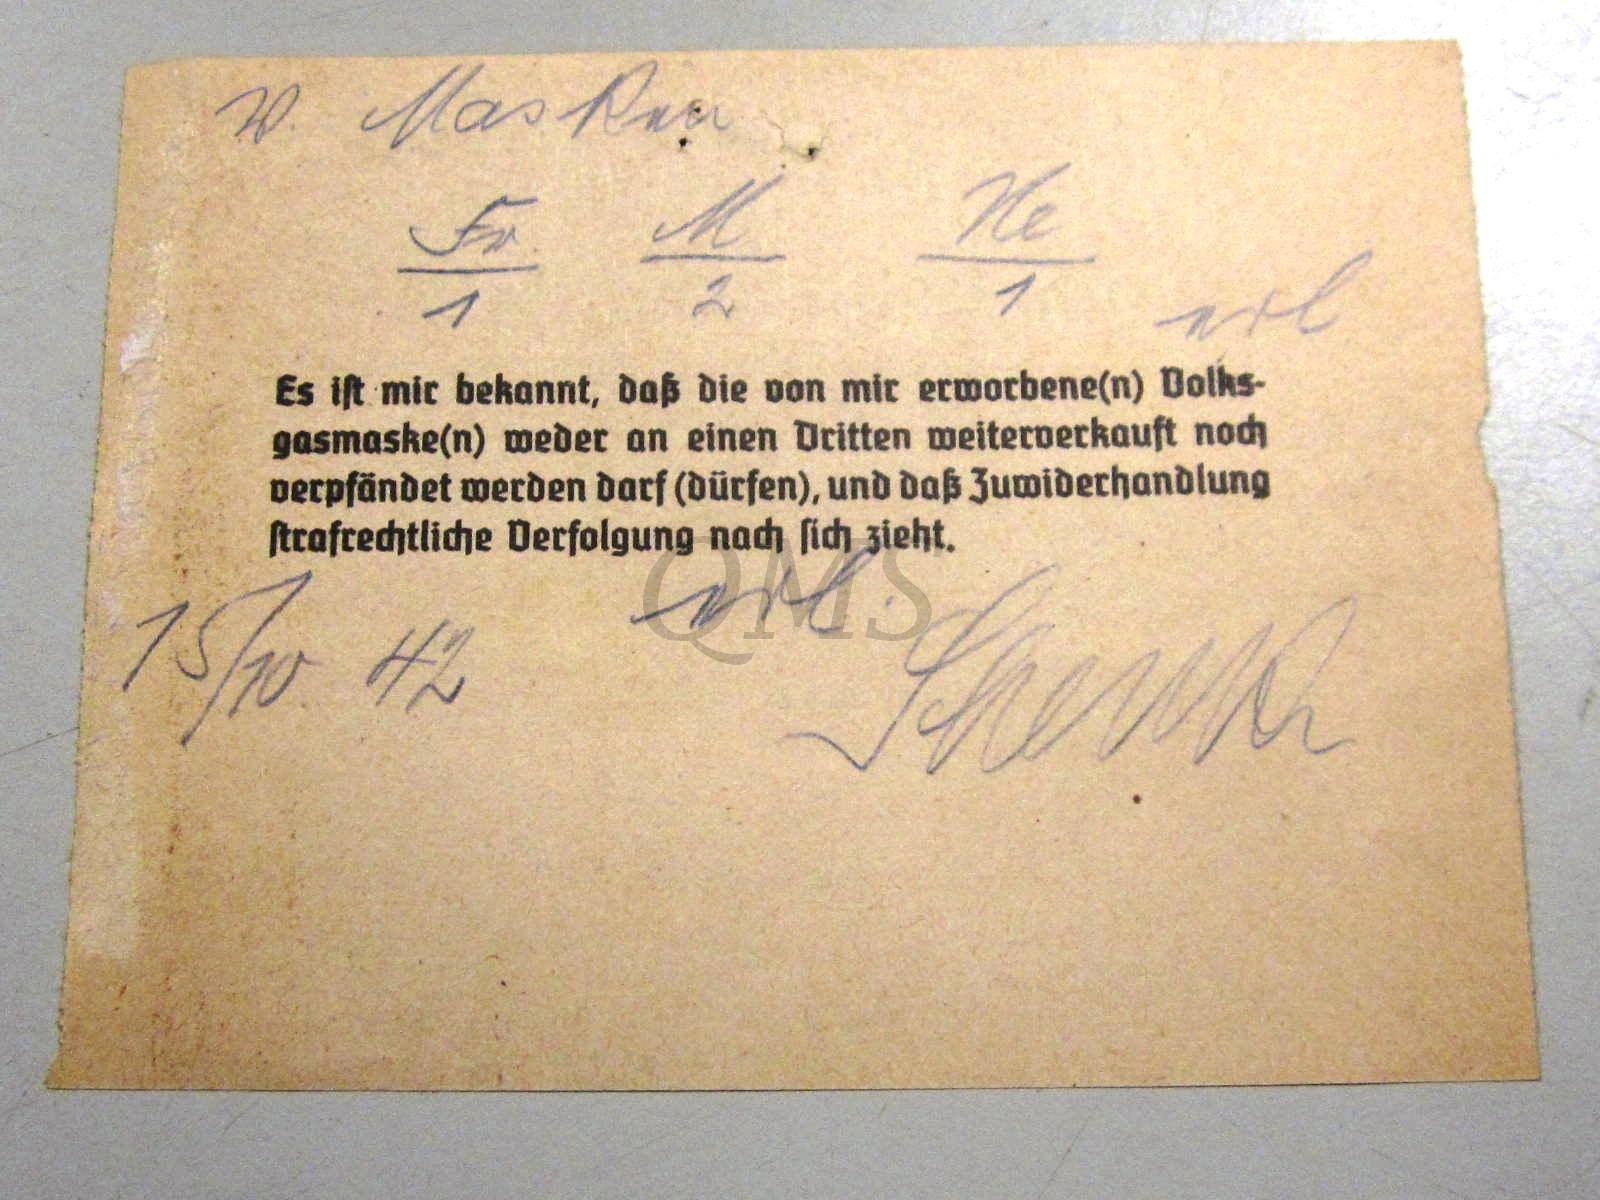 v. Masken
Fr. M He
1 2 1
erl
Es ist mir bekannt, daß die von mir erworbene(n) Volks-
gasmaske(n) weder an einen Dritten weiterverkauft noch
verpfändet werden darf (dürfen), und daß Zuwiderhandlung
strafrechtliche Verfolgung nach sich zieht.
QMS
15/10. 42 erl.